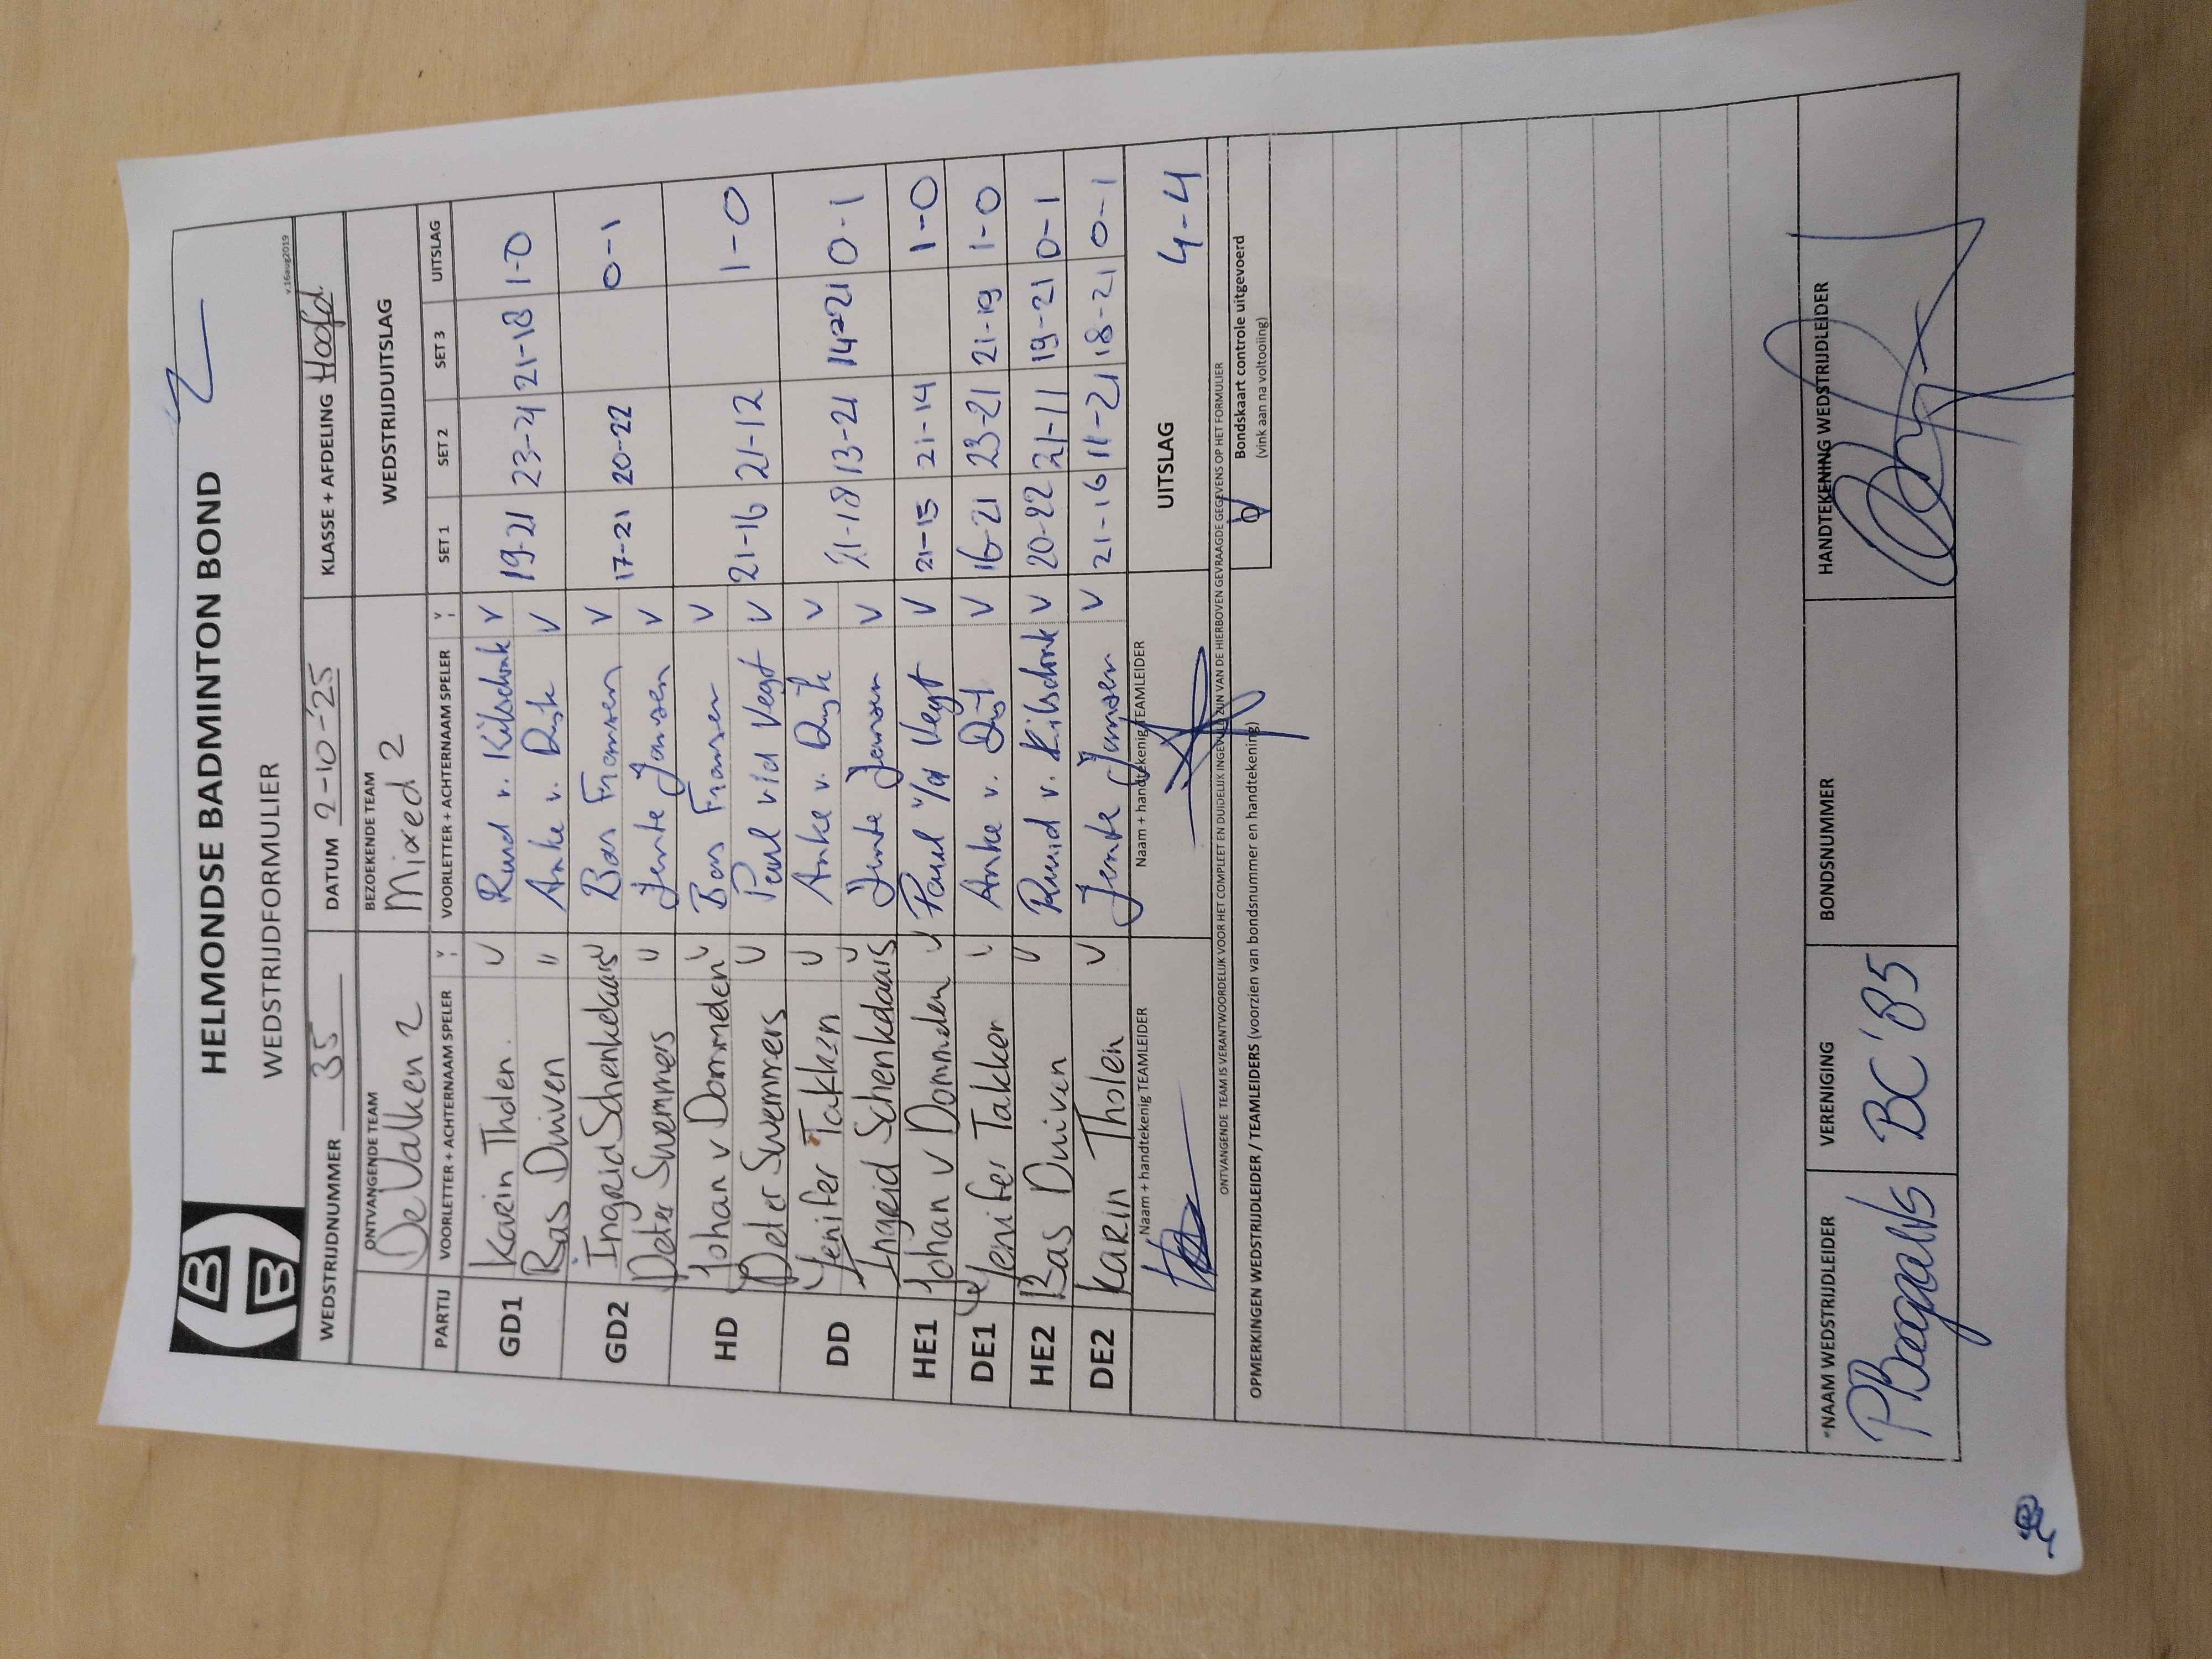 HELMONDSE BADMINTON BOND
WEDSTRIJDFORMULIER
v.16aug2019
WEDSTRIJDNUMMER 35 DATUM 2-10-'25 KLASSE + AFDELING Hoofd
ONTVANGENDE TEAM BEZOEKENDE TEAM WEDSTRIJDUITSLAG
De Valken 2 Mixed 2
PARTIJ VOORLETTER + ACHTERNAAM SPELER VOORLETTER + ACHTERNAAM SPELER SET 1 SET 2 SET 3 UITSLAG
GD1 Karin Tholen V Ruud v. Kilsdonk V
Bas Duiven " Anke v. Dijk V 19-21 23-21 21-18 1-0
GD2 Ingrid Schenkelaars V Bas Fransen V
Peter Swemmers " Jente Jansen V 17-21 20-22 0-1
HD Johan v Dommelen V Bas Fransen V
Peter Swemmers V Paul v/d Vegt V 21-16 21-12 1-0
DD Jenifer Takken V Anke v. Dijk V
Ingrid Schenkelaars V Jente Jansen V 21-18 13-21 14-21 0-1
HE1 Johan v Dommelen V Paul v/d Vegt V 21-15 21-14 1-0
DE1 Jenifer Takken V Anke v. Dijk V 16-21 23-21 21-19 1-0
HE2 Bas Duiven V Ruud v. Kilsdonk V 20-22 21-11 19-21 0-1
DE2 Karin Tholen V Jente Jansen V 21-16 11-21 18-21 0-1
Naam + handtekenig TEAMLEIDER Naam + handtekenig TEAMLEIDER UITSLAG 4-4
ONTVANGENDE TEAM IS VERANTWOORDELIJK VOOR HET COMPLEET EN DUIDELIJK INGEVULD ZIJN VAN DE HIERBOVEN GEVRAAGDE GEGEVENS OP HET FORMULIER
OPMERKINGEN WEDSTRIJDLEIDER / TEAMLEIDERS (voorzien van bondsnummer en handtekening) Bondskaart controle uitgevoerd
(vink aan na voltooiing)
*NAAM WEDSTRIJDLEIDER VERENIGING BONDSNUMMER HANDTEKENING WEDSTRIJDLEIDER
BC '85